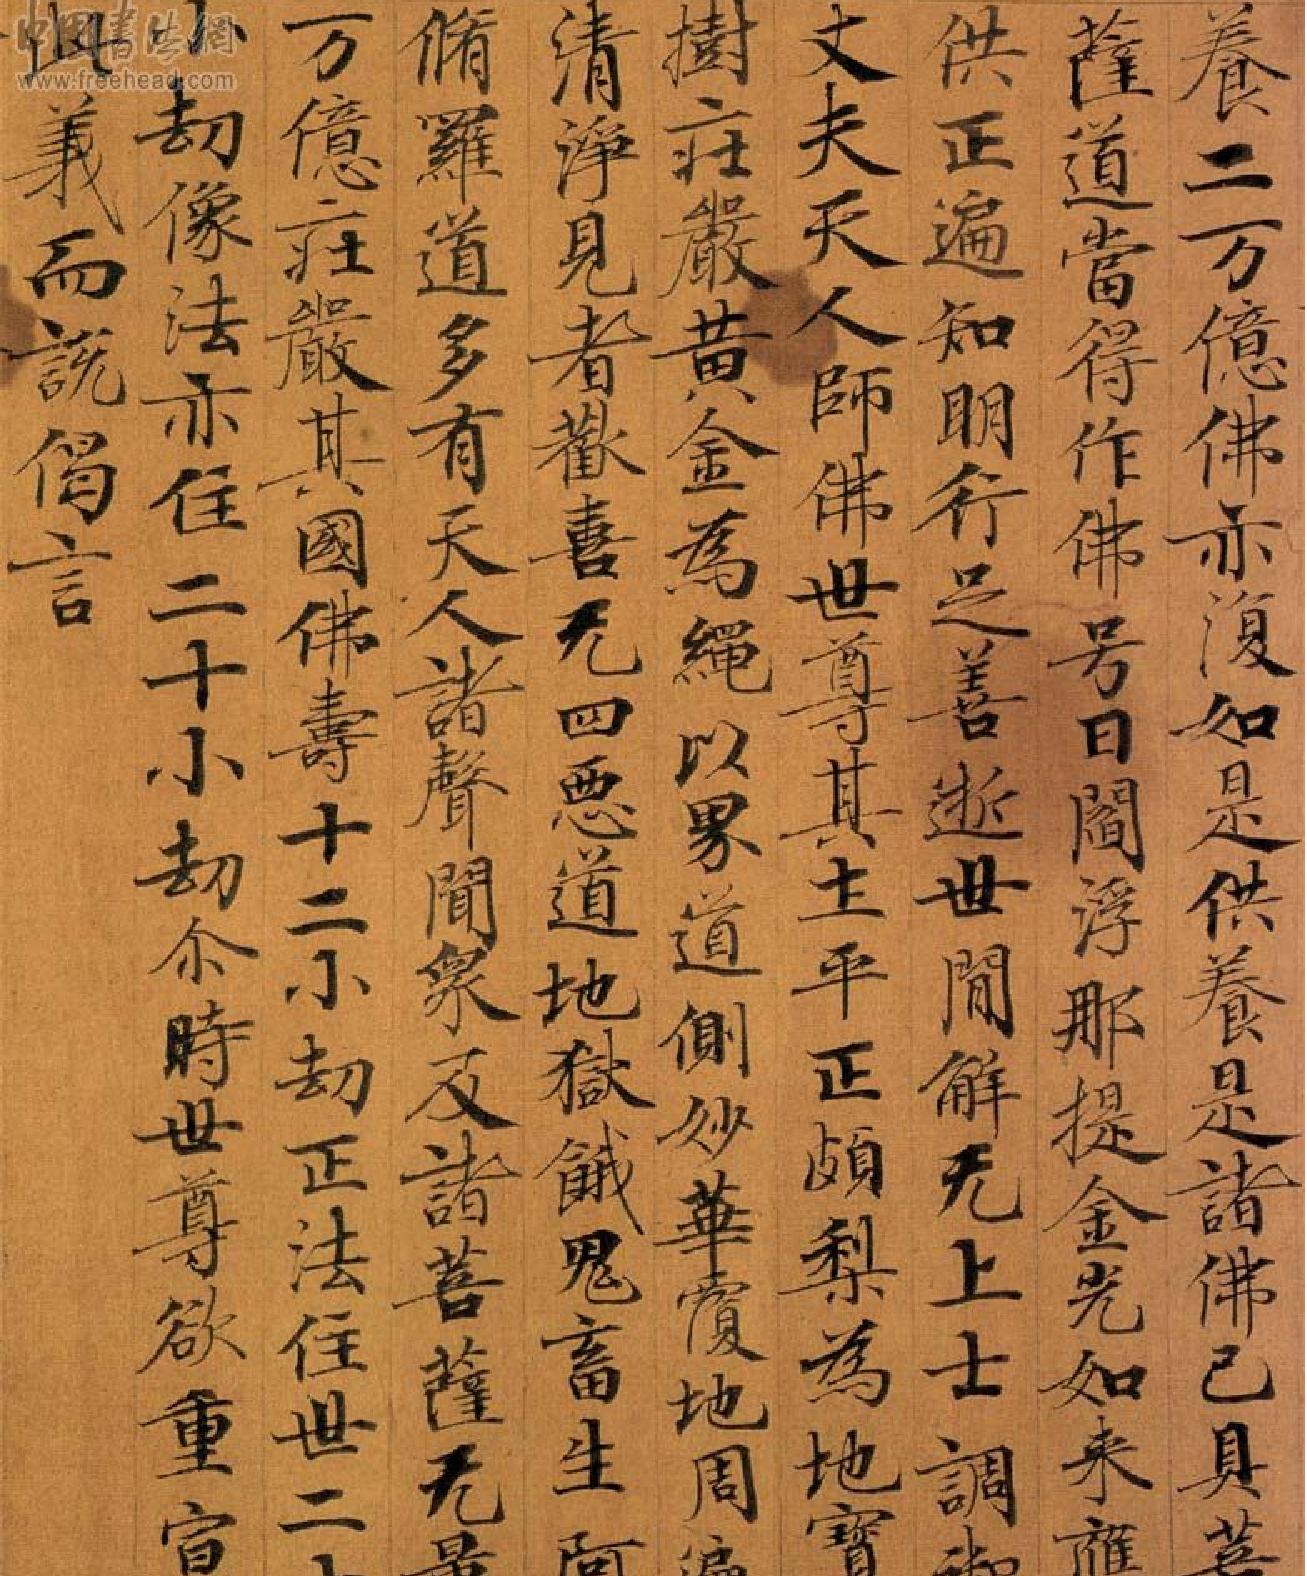 養二万億佛亦復如是供養是諸佛已具菩
薩道當得作佛号曰閻浮那提金光如来應
供正遍知明行足善逝世間解无上士調御
丈夫天人師佛世尊其土平正頗梨為地寶
樹莊嚴黄金為繩以界道側妙華覆地周遍
清淨見者歡喜无四惡道地獄餓鬼畜生阿
脩羅道多有天人諸聲聞衆及諸菩薩无量
万億莊嚴其國佛壽十二小劫正法住世二十
小劫像法亦住二十小劫尒時世尊欲重宣
此義而說偈言
中国書法網
www.freehead.com